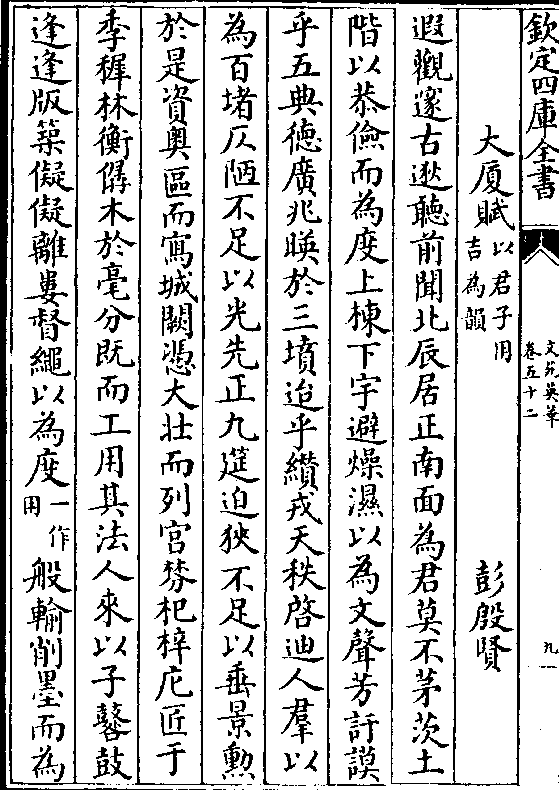 欽定四庫全書
文苑英華
卷五十二
九
大厦賦以君子用
吉為韻
彭殷賢
遐觀邃古逖聽前聞北辰居正南面為君莫不茅茨土
階以恭儉而為度上棟下宇避燥濕以為文聲芳訏謨
乎五典徳廣兆暎於三墳迨乎纘戎天秩啓迪人羣以
為百堵仄陋不足以光先正九筵迫狹不足以垂景勲
於是資奥區而寫城闕憑大壮而列宫棼杞梓庀匠于
季穉林衡僝木於毫分既而工用其法人來以子鼛鼓
逢逢版築儗儗離婁督繩以為度一作
用般輸削墨而為